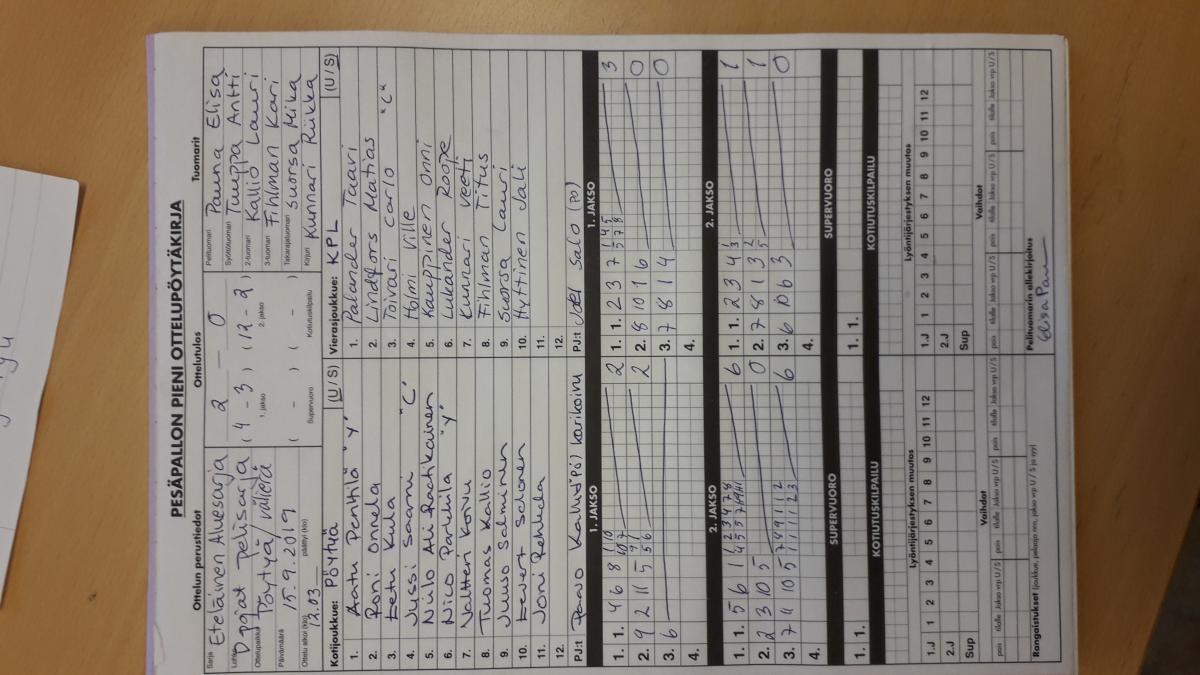 PESÄPALLON PIENI OTTELUPÖYTÄKIRJA
Ottelun perustiedot
Ottelutulos
Tuomarit
Sarja Eteläinen Aluesarja
Lohko Dpojat pelisarja
Ottelupaikka Pöytyä/välierä
Päivämäärä 15.9.2019
Ottelu alkoi (klo) 12.03 päättyi (klo)
2 - 0
( 4 - 3 ) ( 12 - 2 )
1. jakso 2. jakso
( - ) ( - )
Supervuoro Kotiutuskilpailu
Pelituomari Pauna Elisa
Syöttötuomari Tumppa Antti
2-tuomari Kallio Lauri
3-tuomari Fihlman Kari
Takarajatuomari Suorsa Mika
Kirjuri Kunnari Riikka
Kotijoukkue: Pöytyä (U / S)
1. Aatu Penttilä "Y"
2. Roni Onnela
3. Eetu Kula
4. Jussi Saarni "C"
5. Niilo Ali-Raatikainen
6. Nico Pakkila "Y"
7. Valtteri Koivu
8. Tuomas Kallio
9. Juuso Salminen
10. Eevert Salonen
11. Joni Rehkola
12.
PJ:t Paavo (PÖ) Karikoivu
Vierasjoukkue: KPL (U / S)
1. Palander Taavi
2. Lindfors Matias
3. Toivari Carlo "C"
4. Holmi Ville
5. Kauppinen Onni
6. Lukander Roope
7. Kunnari Veeti
8. Fihlman Titus
9. Suorsa Lauri
10. Hyttinen Jali
11.
12.
PJ:t Joel Salo (PO)
1. JAKSO
1. 1. 4 6 8 2
2. 9 2 11 5 2
3. 6
4.
1. JAKSO
1. 1. 2 3 7 3
2. 8 10 1 6 0
3. 7 8 1 4 0
4.
2. JAKSO
1. 1. 5 6 1 6
2. 2 3 10 5 0
3. 7 11 10 5 6
4.
2. JAKSO
1. 1. 2 3 4 1
2. 7 8 1 3 1
3. 6 10 6 3 0
4.
SUPERVUORO
1. 1.
SUPERVUORO
1. 1.
KOTIUTUSKILPAILU
KOTIUTUSKILPAILU
Lyöntijärjestyksen muutos
1.J 1 2 3 4 5 6 7 8 9 10 11 12
2.J
Sup
Lyöntijärjestyksen muutos
1.J 1 2 3 4 5 6 7 8 9 10 11 12
2.J
Sup
Vaihdot
pois tilalle Jakso vrp U / S pois tilalle Jakso vrp U / S
Vaihdot
pois tilalle Jakso vrp U / S pois tilalle Jakso vrp U / S
Rangaistukset (joukkue, pelaaja nro, jakso vrp U / S ja syy)
Pelituomarin allekirjoitus